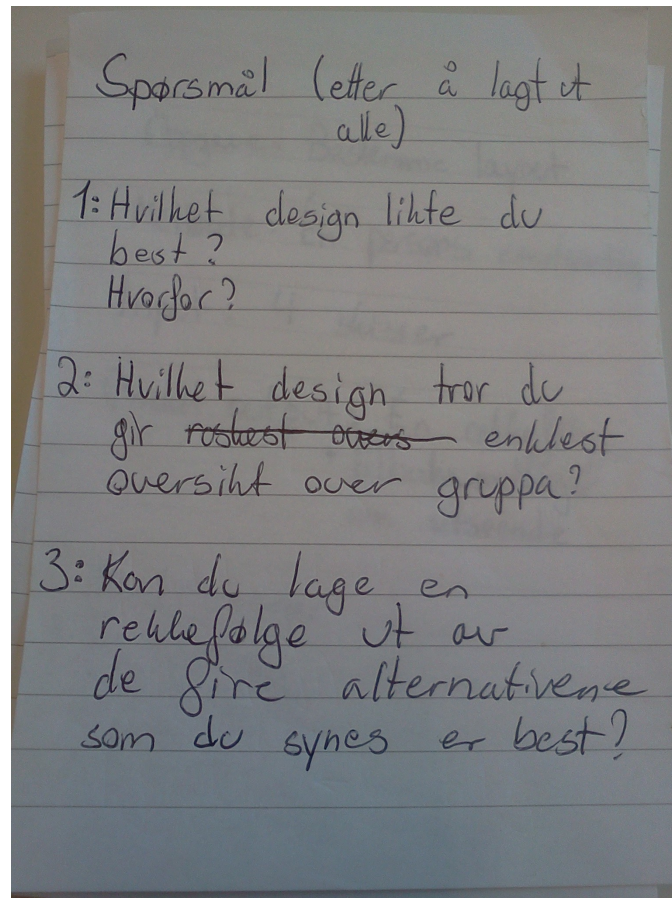 Spørsmål (etter å lagt ut
alle)
1: Hvilket design likte du
best?
Hvorfor?
2: Hvilket design tror du
gir raskest overs enklest
oversikt over gruppa?
3: Kan du lage en
rekkefølge ut av
de fire alternativene
som du synes er best?